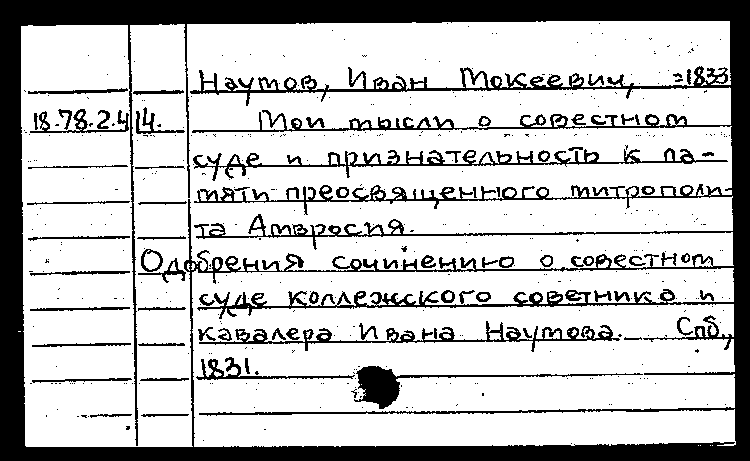 Наумов, Иван Мокеевич, =1833
18.78.2.4 14. Мои мысли о совестном
суде и признательность к па-
мяти преосвященного митрополи-
та Амвросия.
Одобрения сочинению о совестном
суде коллежского советника и
кавалера Ивана Наумова. Спб.,
1831.